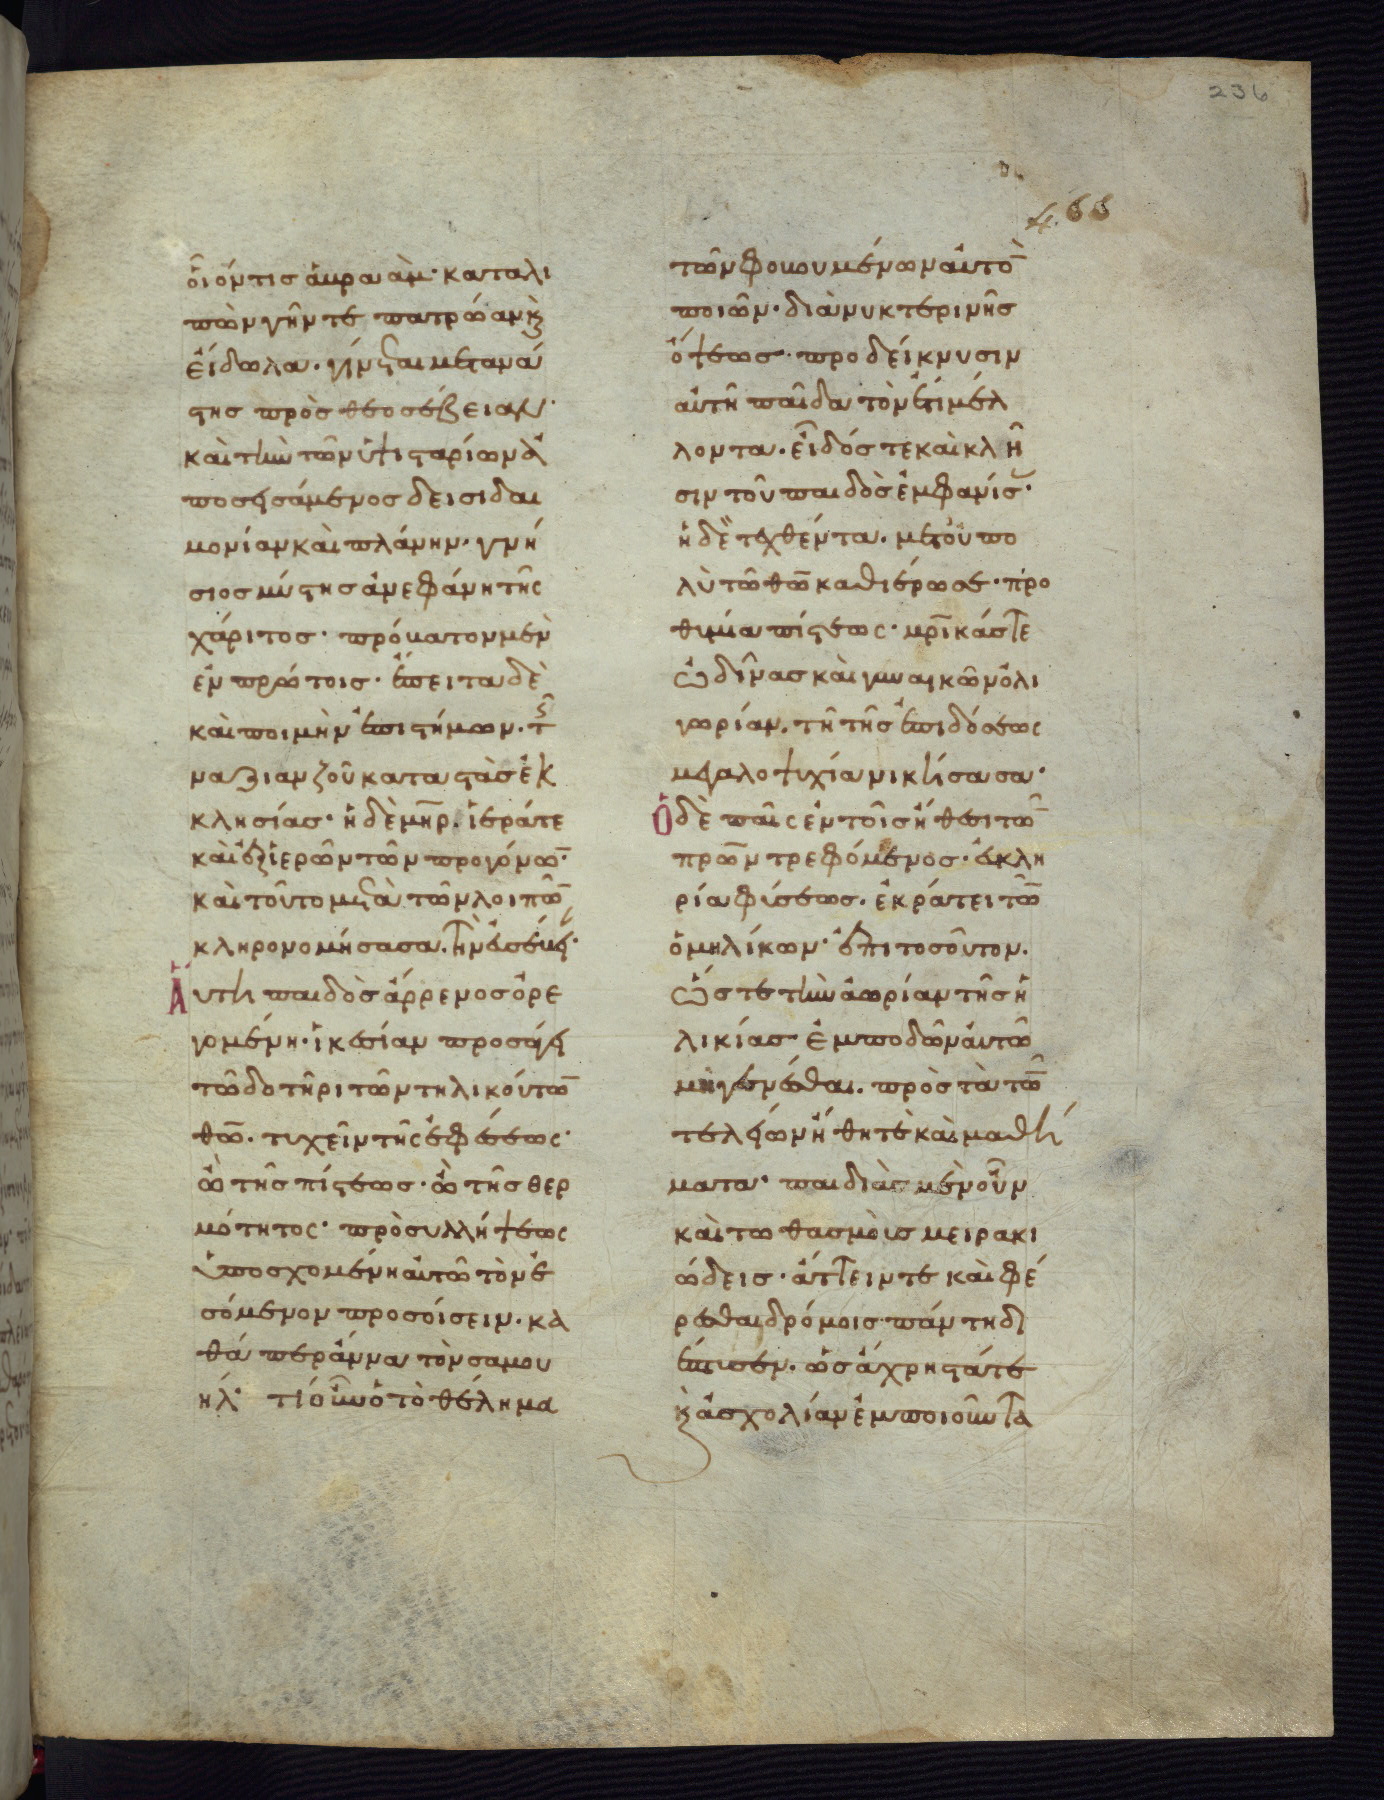 236
466
οἷόν τις ἀβραάμ· καταλι
πὼν γῆν τε πατρώαν κ(αὶ)
εἴδωλα. γίνεται μετανά
στης πρὸς θεοσέβειαν·
καὶ τὴν τῶν ὑψισταρίων ἀ
ποσεισάμενος δεισιδαι
μονίαν καὶ πλάνην. γνή
σιος μύστης ἀνεφάνη τῆς
χάριτος· πρόβατον μὲν
ἐν πρώτοις· ἔπειτα δὲ
καὶ ποιμὴν ἐπιστήμων. τῆς
ναζιανζοῦ καταστὰς ἐκ
κλησίας· ἡ δὲ μῆρ. ἱερά τε
καὶ ἐξ ἱερῶν τῶν προγόνων·
καὶ τοῦτο μετὰ τῶν λοιπῶν
κληρονομήσασα. τὴν εὐσέβει·
Αὕτη παιδὸς ἄρρενος ὀρε
γομένη. ἱκεσίαν προσάγει
τῶ δοτῆρι τῶν τηλικούτων
θῶ. τυχεῖν τῆς ἐφέσεως·
ὢ τῆς πίστεως· ὢ τῆς θερ
μότητος· πρὸ συλλήψεως
ὑποσχομένη αὐτῶ τὸν ἐ
σόμενον προσοίσειν. κα
θάπερ ἄννα τὸν σαμου
ήλ· τί οὖν ὁ τὸ θέλημα
τῶν φοβουμένων αὐτὸν
ποιῶν· διὰ νυκτερινῆς
ὄψεως· προδείκνυσιν
αὐτῆ παῖδα τὸν ἔτι μέλ
λοντα. εἶδός τε καὶ κλῆ
σιν τοῦ παιδὸς ἐμφανίσας·
ἡ δὲ τεχθέντα. μετ' οὐ πο
λὺ τῶ θῶ καθιέρωσε· προ
θυμία πίστεως· μρικάς τε
ὠδῖνας καὶ γυναικῶν ὀλι
γωρίαν. τῆ τῆς ἐπιδόσεως
μεγαλοψυχία νικήσασα·
Ὁ δὲ παῖς ἐν τοῖς ἤθεσι τῶν
πρων τρεφόμενος. εὐκλη
ρία φύσεως. ἐκράτει τῶν
ὁμηλίκων· ἐπιτοσοῦτον.
ὥστε τὴν ἀωρίαν τῆς ἡ
λικίας· ἐμποδὼν αὐτῶ
μὴ γενέσθαι. πρὸς τὰ τῶν
τελείων ἤθη τε καὶ μαθή
ματα· παιδιὰς μὲν οὖν
καὶ τωθασμοὺς μειρακι
ώδεις· ἄττειν τε καὶ φέ
ρεσθαι δρόμοις πάντη δι
έπτυσεν. ὡς ἄχρηστά τε
κ(αὶ) ἀσχολίαν ἐμποιοῦντα